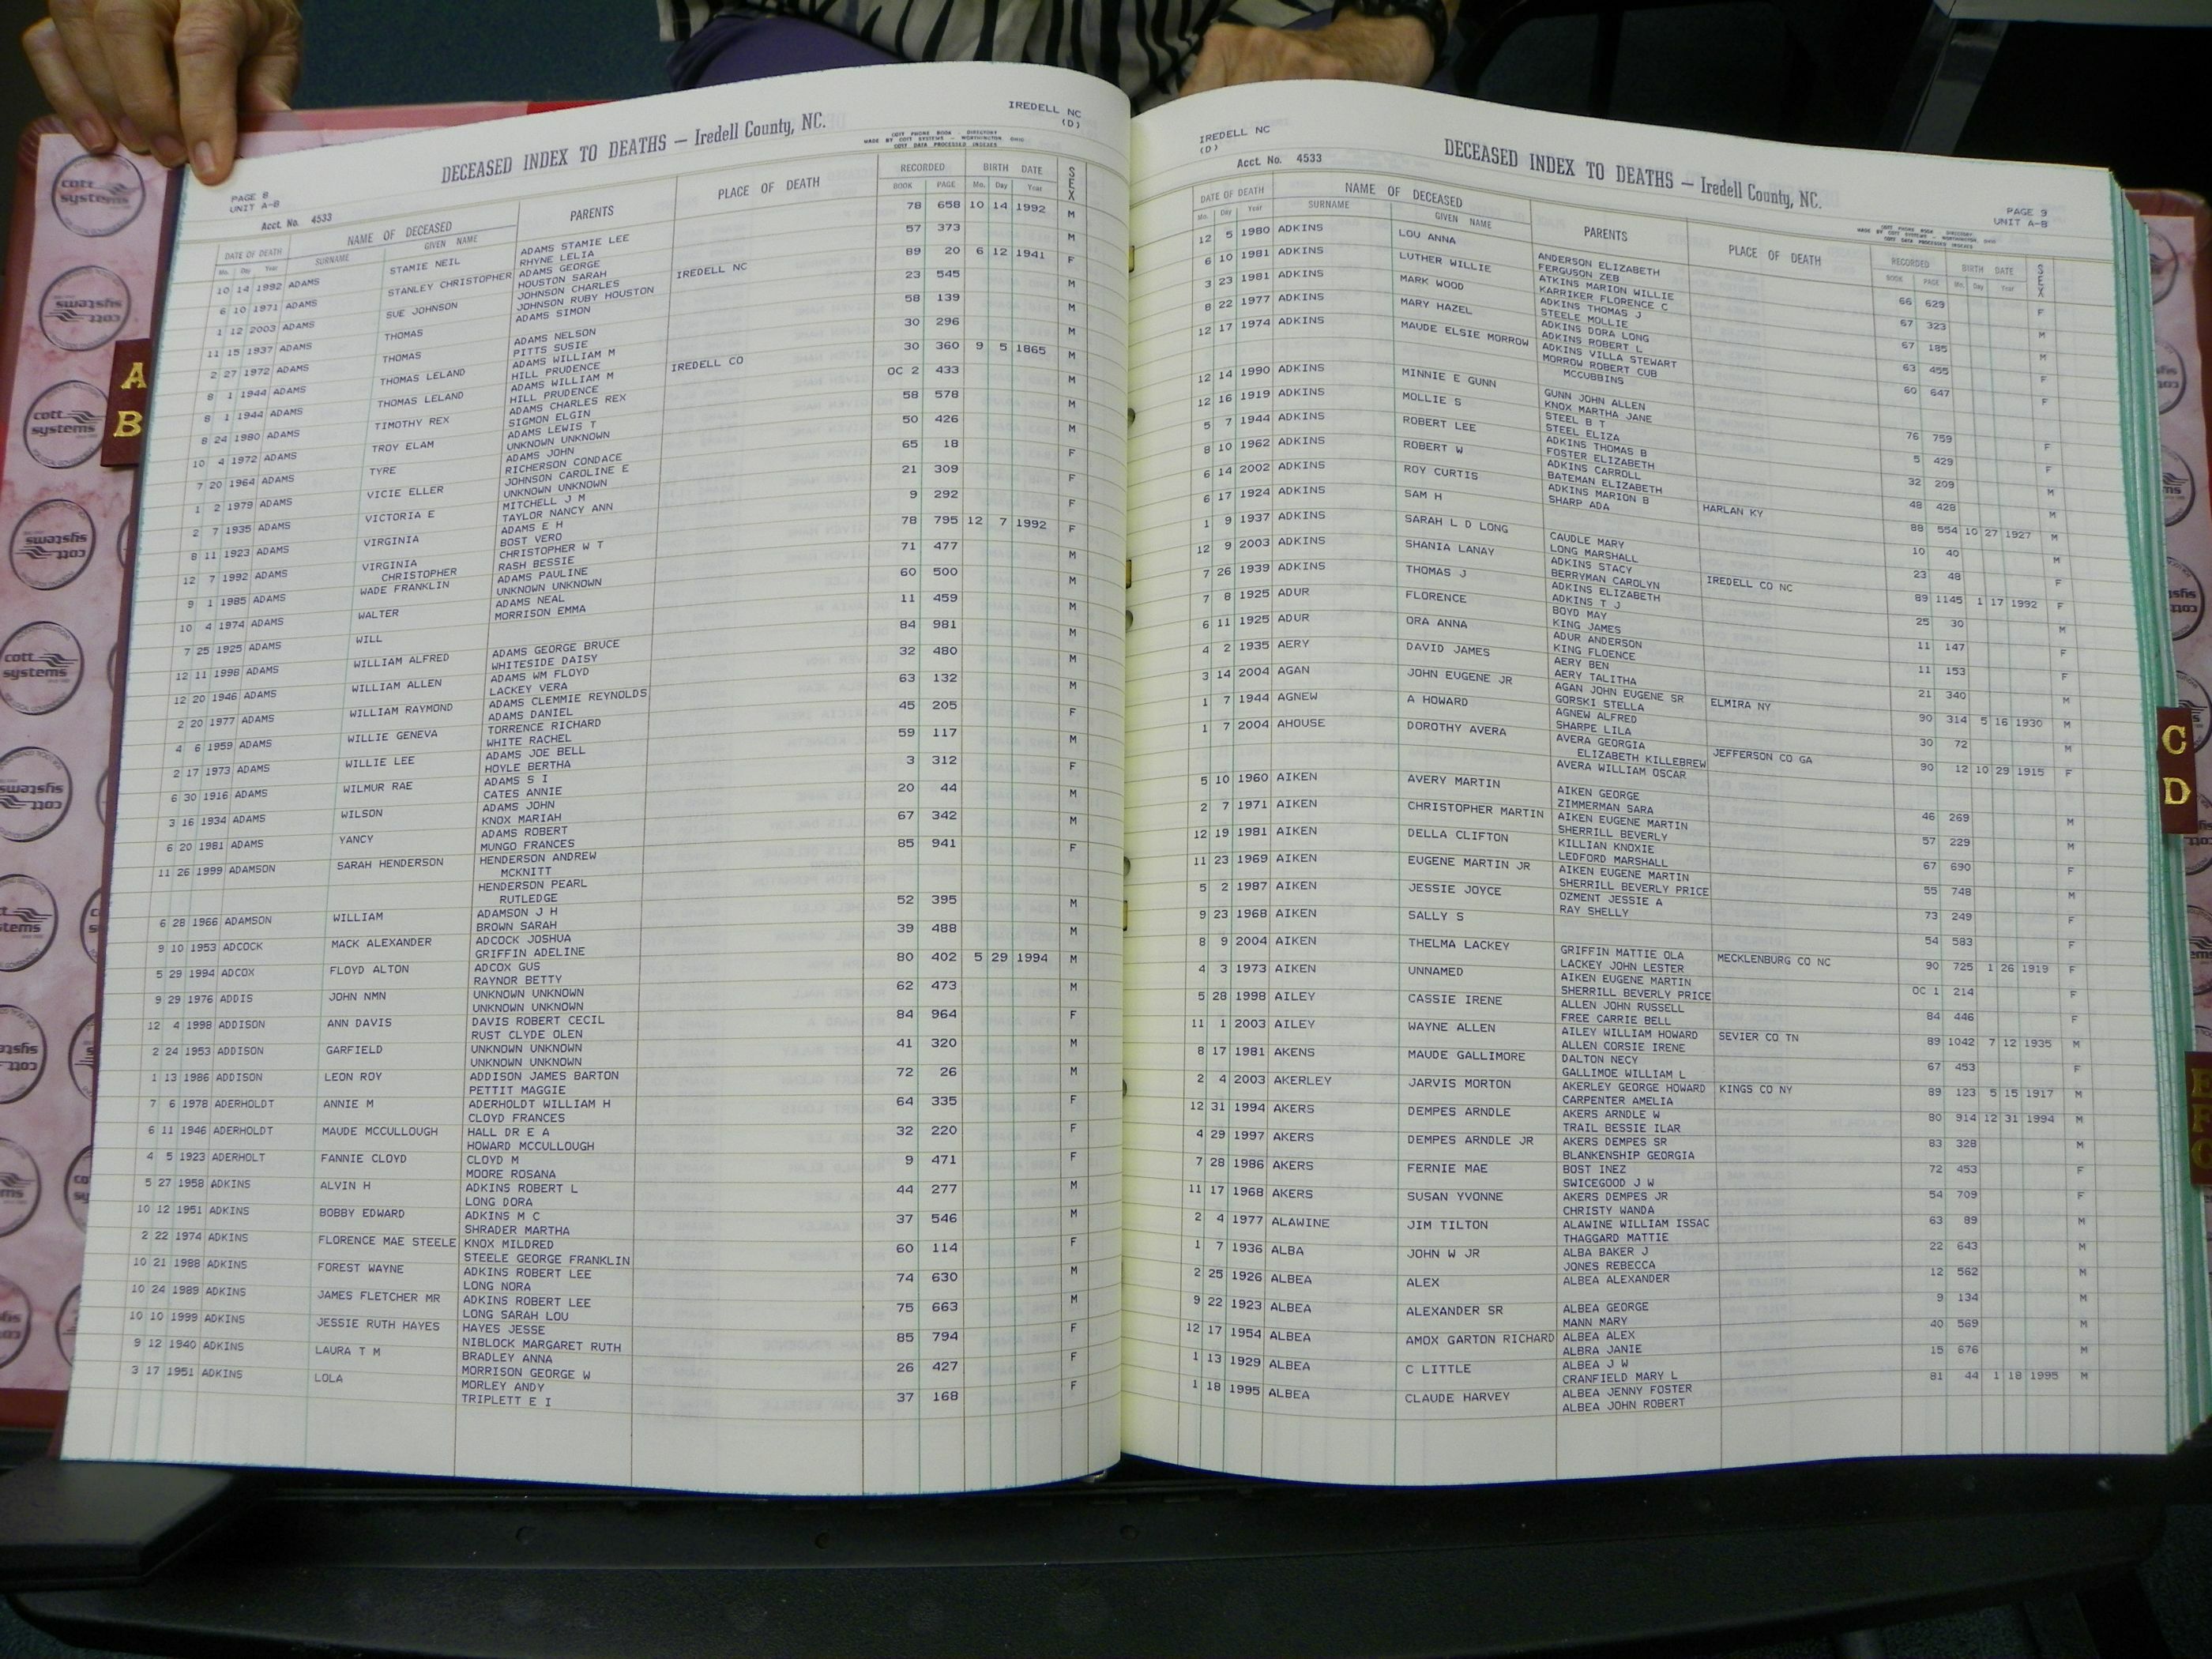 IREDELL NC
(D)
DECEASED INDEX TO DEATHS — Iredell County, NC.
COTT PHONE BOOK - DIRECTORY
MADE BY COTT SYSTEMS - WORTHINGTON OHIO
COTT DATA PROCESSED INDEXES
PAGE 8
UNIT A-B
Acct. No. 4533
DATE OF DEATH NAME OF DECEASED PARENTS PLACE OF DEATH RECORDED BIRTH DATE SEX
Mo. Day Year SURNAME GIVEN NAME BOOK PAGE Mo. Day Year
10 14 1992 ADAMS STAMIE NEIL ADAMS STAMIE LEE 78 658 10 14 1992 M
RHYNE LELIA
6 10 1971 ADAMS STANLEY CHRISTOPHER ADAMS GEORGE 57 373 M
HOUSTON SARAH
1 12 2003 ADAMS SUE JOHNSON JOHNSON CHARLES IREDELL NC 89 20 6 12 1941 F
JOHNSON RUBY HOUSTON
11 15 1937 ADAMS THOMAS ADAMS SIMON 23 545 M
2 27 1972 ADAMS THOMAS ADAMS NELSON 58 139 M
PITTS SUSIE
8 1 1944 ADAMS THOMAS LELAND ADAMS WILLIAM M 30 296 M
HILL PRUDENCE
8 1 1944 ADAMS THOMAS LELAND ADAMS WILLIAM M IREDELL CO 30 360 9 5 1865 M
HILL PRUDENCE
8 24 1980 ADAMS TIMOTHY REX ADAMS CHARLES REX OC 2 433 M
SIGMON ELGIN
10 4 1972 ADAMS TROY ELAM ADAMS LEWIS T 58 578 M
UNKNOWN UNKNOWN
7 20 1964 ADAMS TYRE ADAMS JOHN 50 426 M
RICHERSON CONDACE
1 2 1979 ADAMS VICIE ELLER JOHNSON CAROLINE E 65 18 F
UNKNOWN UNKNOWN
2 7 1935 ADAMS VICTORIA E MITCHELL J M 21 309 F
TAYLOR NANCY ANN
8 11 1923 ADAMS VIRGINIA ADAMS E H 9 292 F
BOST VERO
12 7 1992 ADAMS VIRGINIA CHRISTOPHER W T 78 795 12 7 1992 F
CHRISTOPHER RASH BESSIE
9 1 1985 ADAMS WADE FRANKLIN ADAMS PAULINE 71 477 M
UNKNOWN UNKNOWN
10 4 1974 ADAMS WALTER ADAMS NEAL 60 500 M
MORRISON EMMA
7 25 1925 ADAMS WILL 11 459 M
12 11 1998 ADAMS WILLIAM ALFRED ADAMS GEORGE BRUCE 84 981 M
WHITESIDE DAISY
12 20 1946 ADAMS WILLIAM ALLEN ADAMS WM FLOYD 32 480 M
LACKEY VERA
2 20 1977 ADAMS WILLIAM RAYMOND ADAMS CLEMMIE REYNOLDS 63 132 M
ADAMS DANIEL
4 6 1959 ADAMS WILLIE GENEVA TORRENCE RICHARD 45 205 F
WHITE RACHEL
2 17 1973 ADAMS WILLIE LEE ADAMS JOE BELL 59 117 M
HOYLE BERTHA
6 30 1916 ADAMS WILMUR RAE ADAMS S I 3 312 F
CATES ANNIE
3 16 1934 ADAMS WILSON ADAMS JOHN 20 44 M
KNOX MARIAH
6 20 1981 ADAMS YANCY ADAMS ROBERT 67 342 M
MUNGO FRANCES
11 26 1999 ADAMSON SARAH HENDERSON HENDERSON ANDREW 85 941 F
MCKNITT
HENDERSON PEARL
RUTLEDGE
6 28 1966 ADAMSON WILLIAM ADAMSON J H 52 395 M
BROWN SARAH
9 10 1953 ADCOCK MACK ALEXANDER ADCOCK JOSHUA 39 488 M
GRIFFIN ADELINE
5 29 1994 ADCOX FLOYD ALTON ADCOX GUS 80 402 5 29 1994 M
RAYNOR BETTY
9 29 1976 ADDIS JOHN NMN UNKNOWN UNKNOWN 62 473 M
UNKNOWN UNKNOWN
12 4 1998 ADDISON ANN DAVIS DAVIS ROBERT CECIL 84 964 F
RUST CLYDE OLEN
2 24 1953 ADDISON GARFIELD UNKNOWN UNKNOWN 41 320 M
UNKNOWN UNKNOWN
1 13 1986 ADDISON LEON ROY ADDISON JAMES BARTON 72 26 M
PETTIT MAGGIE
7 6 1978 ADERHOLDT ANNIE M ADERHOLDT WILLIAM H 64 335 F
CLOYD FRANCES
6 11 1946 ADERHOLDT MAUDE MCCULLOUGH HALL DR E A 32 220 F
HOWARD MCCULLOUGH
4 5 1923 ADERHOLT FANNIE CLOYD CLOYD M 9 471 F
MOORE ROSANA
5 27 1958 ADKINS ALVIN H ADKINS ROBERT L 44 277 M
LONG DORA
10 12 1951 ADKINS BOBBY EDWARD ADKINS M C 37 546 M
SHRADER MARTHA
2 22 1974 ADKINS FLORENCE MAE STEELE KNOX MILDRED 60 114 F
STEELE GEORGE FRANKLIN
10 21 1988 ADKINS FOREST WAYNE ADKINS ROBERT LEE 74 630 M
LONG NORA
10 24 1989 ADKINS JAMES FLETCHER MR ADKINS ROBERT LEE 75 663 M
LONG SARAH LOU
10 10 1999 ADKINS JESSIE RUTH HAYES HAYES JESSE 85 794 F
NIBLOCK MARGARET RUTH
9 12 1940 ADKINS LAURA T M BRADLEY ANNA 26 427 F
MORRISON GEORGE W
3 17 1951 ADKINS LOLA MORLEY ANDY 37 168 F
TRIPLETT E I
IREDELL NC
(D)
Acct. No. 4533
DECEASED INDEX TO DEATHS — Iredell County, NC.
PAGE 9
UNIT A-B
COTT PHONE BOOK - DIRECTORY
MADE BY COTT SYSTEMS - WORTHINGTON OHIO
COTT DATA PROCESSED INDEXES
DATE OF DEATH NAME OF DECEASED PARENTS PLACE OF DEATH RECORDED BIRTH DATE SEX
Mo. Day Year SURNAME GIVEN NAME BOOK PAGE Mo. Day Year
12 5 1980 ADKINS LOU ANNA ANDERSON ELIZABETH 66 629 F
FERGUSON ZEB
6 10 1981 ADKINS LUTHER WILLIE ATKINS MARION WILLIE 67 323 M
KARRIKER FLORENCE C
3 23 1981 ADKINS MARK WOOD ADKINS THOMAS J 67 185 M
STEELE MOLLIE
8 22 1977 ADKINS MARY HAZEL ADKINS DORA LONG 63 455 F
ADKINS ROBERT L
12 17 1974 ADKINS MAUDE ELSIE MORROW ADKINS VILLA STEWART 60 647 F
MORROW ROBERT CUB
MCCUBBINS
12 14 1990 ADKINS MINNIE E GUNN GUNN JOHN ALLEN 76 759 F
KNOX MARTHA JANE
12 16 1919 ADKINS MOLLIE S STEEL B T 5 429 F
STEEL ELIZA
5 7 1944 ADKINS ROBERT LEE ADKINS THOMAS B 32 209 M
FOSTER ELIZABETH
8 10 1962 ADKINS ROBERT W ADKINS CARROLL 48 428 M
BATEMAN ELIZABETH
6 14 2002 ADKINS ROY CURTIS ADKINS MARION B HARLAN KY 88 554 10 27 1927 M
SHARP ADA
6 17 1924 ADKINS SAM H 10 40 M
1 9 1937 ADKINS SARAH L D LONG CAUDLE MARY 23 48 F
LONG MARSHALL
12 9 2003 ADKINS SHANIA LANAY ADKINS STACY IREDELL CO NC 89 1145 1 17 1992 F
BERRYMAN CAROLYN
7 26 1939 ADKINS THOMAS J ADKINS ELIZABETH 25 30 M
ADKINS T J
7 8 1925 ADUR FLORENCE BOYD MAY 11 147 F
KING JAMES
6 11 1925 ADUR ORA ANNA ADUR ANDERSON 11 153 F
KING FLOENCE
4 2 1935 AERY DAVID JAMES AERY BEN 21 340 M
AERY TALITHA
3 14 2004 AGAN JOHN EUGENE JR AGAN JOHN EUGENE SR ELMIRA NY 90 314 5 16 1930 M
GORSKI STELLA
1 7 1944 AGNEW A HOWARD AGNEW ALFRED 30 72 M
SHARPE LILA
1 7 2004 AHOUSE DOROTHY AVERA AVERA GEORGIA JEFFERSON CO GA 90 12 10 29 1915 F
ELIZABETH KILLEBREW
AVERA WILLIAM OSCAR
5 10 1960 AIKEN AVERY MARTIN AIKEN GEORGE 46 269 M
ZIMMERMAN SARA
2 7 1971 AIKEN CHRISTOPHER MARTIN AIKEN EUGENE MARTIN 57 229 M
SHERRILL BEVERLY
12 19 1981 AIKEN DELLA CLIFTON KILLIAN KNOXIE 67 690 F
LEDFORD MARSHALL
11 23 1969 AIKEN EUGENE MARTIN JR AIKEN EUGENE MARTIN 55 748 M
SHERRILL BEVERLY PRICE
5 2 1987 AIKEN JESSIE JOYCE OZMENT JESSIE A 73 249 F
RAY SHELLY
9 23 1968 AIKEN SALLY S 54 583 F
8 9 2004 AIKEN THELMA LACKEY GRIFFIN MATTIE OLA MECKLENBURG CO NC 90 725 1 26 1919 F
LACKEY JOHN LESTER
4 3 1973 AIKEN UNNAMED AIKEN EUGENE MARTIN OC 1 214 F
SHERRILL BEVERLY PRICE
5 28 1998 AILEY CASSIE IRENE ALLEN JOHN RUSSELL 84 446 F
FREE CARRIE BELL
11 1 2003 AILEY WAYNE ALLEN AILEY WILLIAM HOWARD SEVIER CO TN 89 1042 7 12 1935 M
ALLEN CORSIE IRENE
8 17 1981 AKENS MAUDE GALLIMORE DALTON NECY 67 453 F
GALLIMOE WILLIAM L
2 4 2003 AKERLEY JARVIS MORTON AKERLEY GEORGE HOWARD KINGS CO NY 89 123 5 15 1917 M
CARPENTER AMELIA
12 31 1994 AKERS DEMPES ARNDLE AKERS ARNDLE W 80 914 12 31 1994 M
TRAIL BESSIE ILAR
4 29 1997 AKERS DEMPES ARNDLE JR AKERS DEMPES SR 83 328 M
BLANKENSHIP GEORGIA
7 28 1986 AKERS FERNIE MAE BOST INEZ 72 453 F
SWICEGOOD J W
11 17 1968 AKERS SUSAN YVONNE AKERS DEMPES JR 54 709 F
CHRISTY WANDA
2 4 1977 ALAWINE JIM TILTON ALAWINE WILLIAM ISSAC 63 89 M
THAGGARD MATTIE
1 7 1936 ALBA JOHN W JR ALBA BAKER J 22 643 M
JONES REBECCA
2 25 1926 ALBEA ALEX ALBEA ALEXANDER 12 562 M
9 22 1923 ALBEA ALEXANDER SR ALBEA GEORGE 9 134 M
MANN MARY
12 17 1954 ALBEA AMOX GARTON RICHARD ALBEA ALEX 40 569 M
ALBRA JANIE
1 13 1929 ALBEA C LITTLE ALBEA J W 15 676 M
CRANFIELD MARY L
1 18 1995 ALBEA CLAUDE HARVEY ALBEA JENNY FOSTER 81 44 1 18 1995 M
ALBEA JOHN ROBERT
A
B
C
D
cott
systems